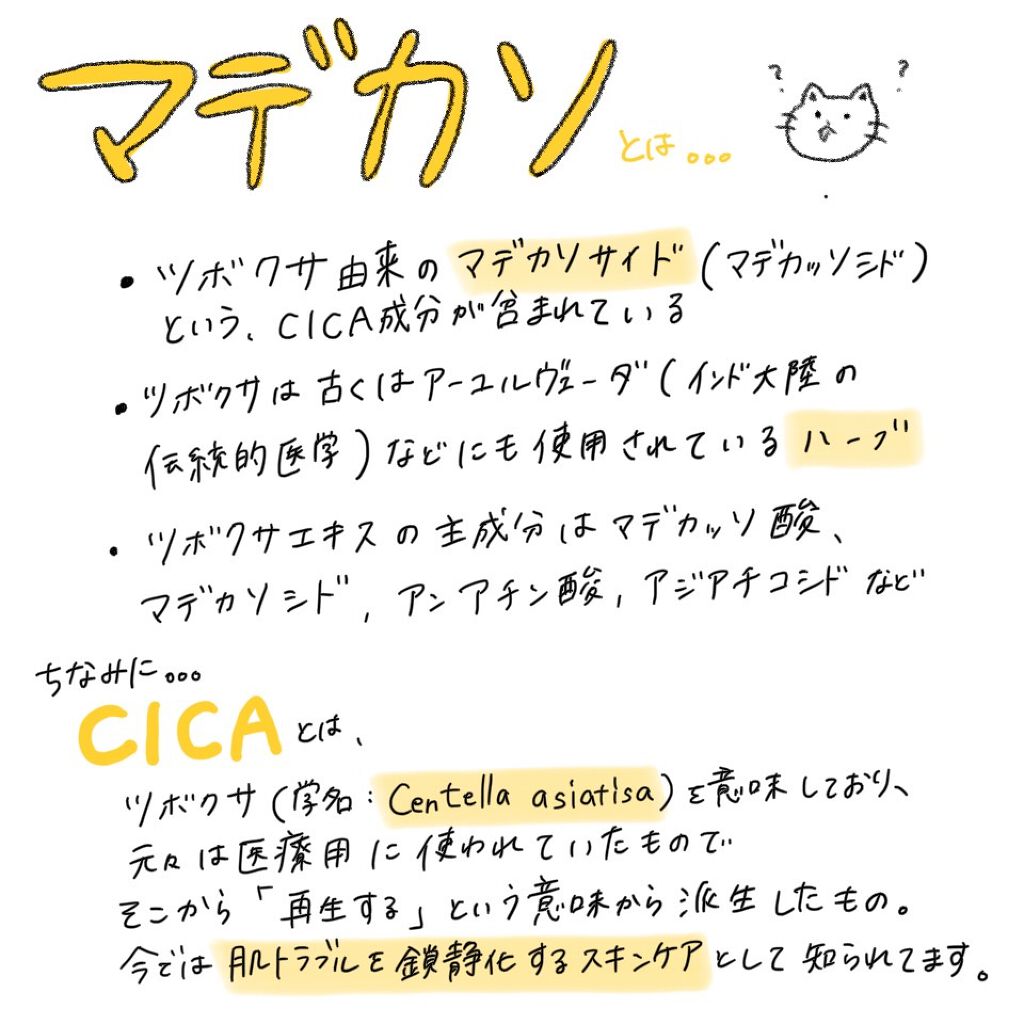 マデカソとは...
? ?
・ツボクサ由来のマデカソサイド(マデカッソシド)
という、CICA成分が含まれている
・ツボクサは古くはアーユルヴェーダ(インド大陸の
伝統的医学)などにも使用されているハーブ
・ツボクサエキスの主成分はマデカッソ酸、
マデカソシド, アシアチン酸, アジアチコシドなど
ちなみに...
CICAとは、
ツボクサ(学名:Centella asiatisa)を意味しており、
元々は医療用に使われていたもので
そこから「再生する」という意味から派生したもの。
今では肌トラブルを鎖静化するスキンケアとして知られてます。